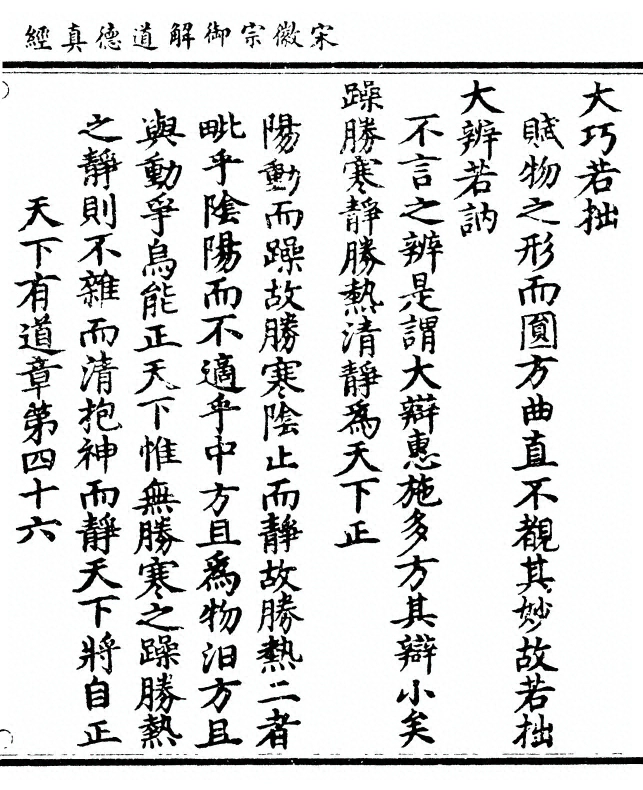 宋徽宗御解道德真經
大巧若拙
賦物之形而圓方曲直不覩其妙故若拙
大辨若訥
不言之辨是謂大辯惠施多方其辯小矣
躁勝寒靜勝熱清靜爲天下正
陽動而躁故勝寒陰止而靜故勝熱二者
毗乎陰陽而不適乎中方且爲物汩方且
與動爭烏能正天下惟無勝寒之躁勝熱
之靜則不雜而清抱神而靜天下將自正
天下有道章第四十六